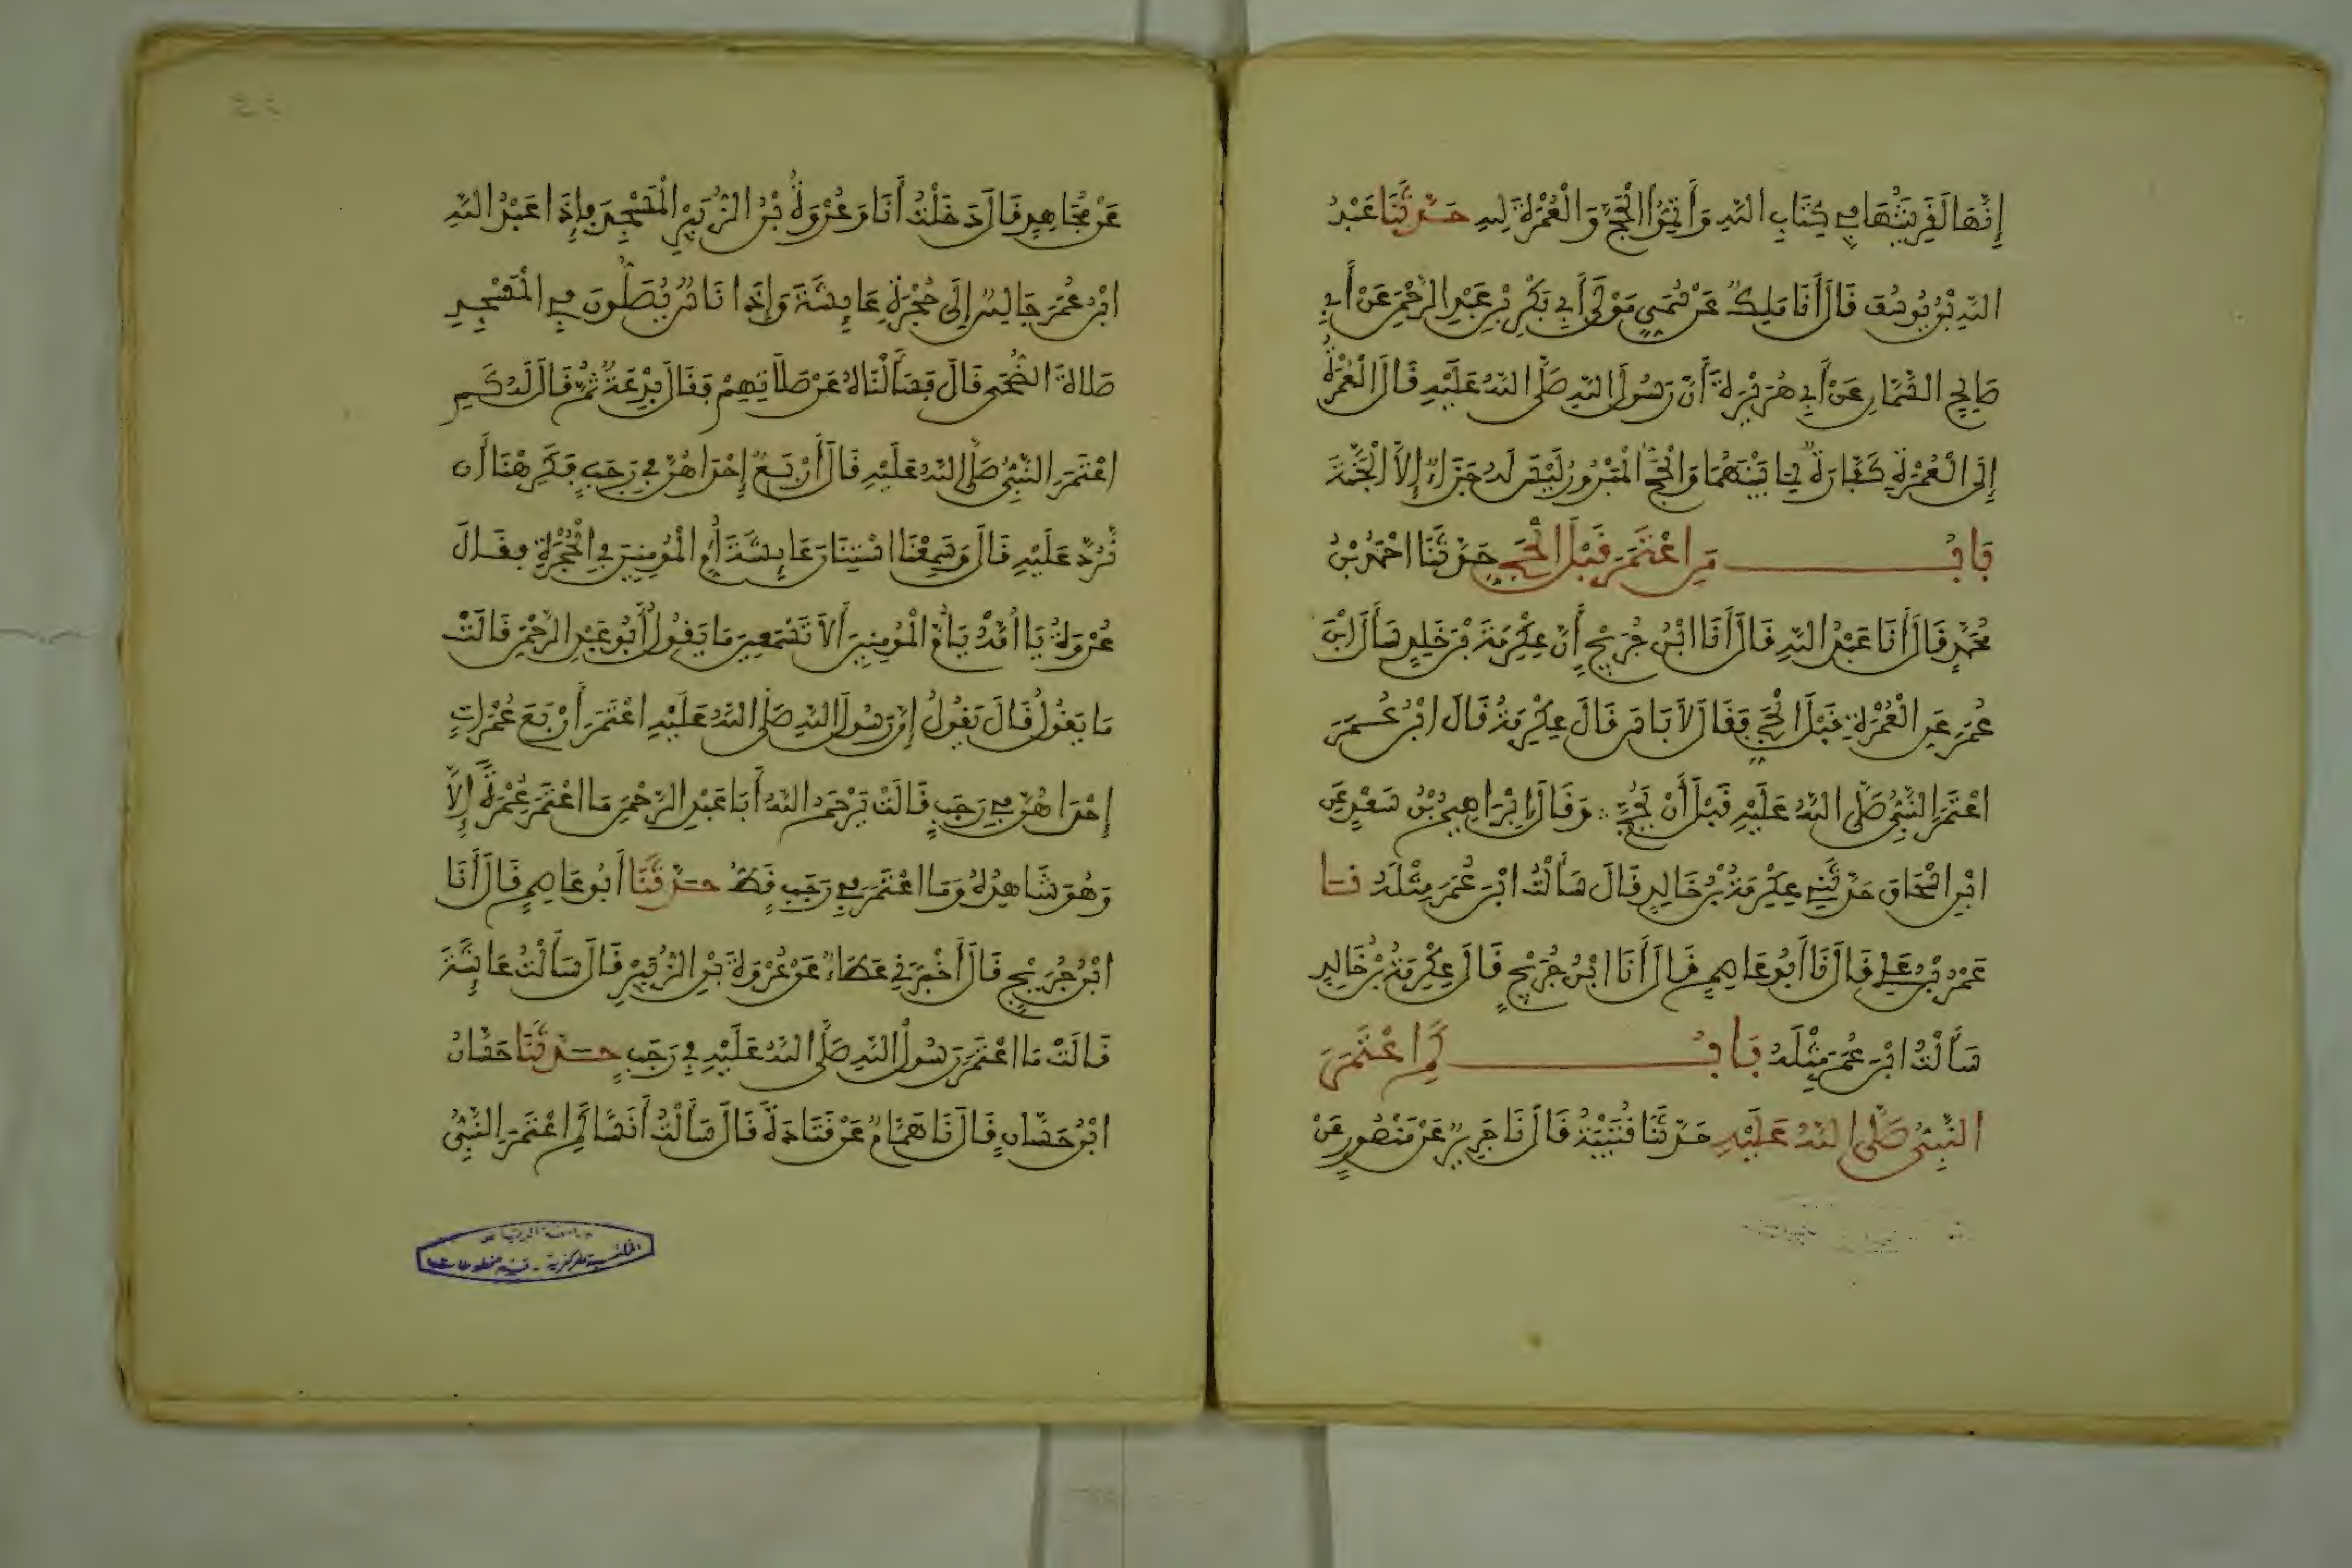 إِنَّهَا لَقَرِينَتُهَا فِي كِتَابِ اللَّهِ وَأَتِمُّوا الْحَجَّ وَالْعُمْرَةَ لِلهِ حَدَّثَنَا عَبْدُ
اللَّهِ بْنُ يُوسُفَ قَالَ أَنَا مَلِكٌ عَنْ سُمَيٍّ مَوْلَى أَبِي بَكْرِ بْنِ عَبْدِ الرَّحْمَنِ عَنْ أَبِي
صَالِحٍ السَّمَّانِ عَنْ أَبِي هُرَيْرَةَ أَنَّ رَسُولَ اللَّهِ صَلَّى اللَّهُ عَلَيْهِ قَالَ الْعُمْرَةُ
إِلَى الْعُمْرَةِ كَفَّارَةٌ لِمَا بَيْنَهُمَا وَالْحَجُّ الْمَبْرُورُ لَيْسَ لَهُ جَزَاءٌ إِلاَّ الْجَنَّةَ
بَابُ مَنِ اعْتَمَرَ قَبْلَ الْحَجِّ حَدَّثَنَا احْمَدُ بْنُ
مُحَمَّدٍ قَالَ أَنَا عَبْدُ اللَّهِ قَالَ أَنَا ابْنُ جُرَيْجٍ أَنَّ عِكْرِمَةَ بْنَ خَلِدٍ سَأَلَ ابْنَ
عُمَرَ عَنِ الْعُمْرَةِ قَبْلَ الْحَجِّ فَقَالَ لاَ بَاسَ قَالَ عِكْرِمَةُ قَالَ ابْنُ عُمَرَ
اعْتَمَرَ النَّبِيُّ صَلَّى اللَّهُ عَلَيْهِ قَبْلَ أَنْ يَحُجَّ وَقَالَ إِبْرَاهِيمُ بْنُ سَعْدٍ عَنِ
ابْنِ اسْحَاقَ حَدَّثَنِي عِكْرِمَةُ بْنُ خَالِدٍ قَالَ سَأَلْتُ ابْنَ عُمَرَ مِثْلَهُ نَا
عَمْرُو بْنُ عَلِيٍّ قَالَ نَا أَبُو عَاصِمٍ قَالَ أَنَا ابْنُ جُرَيْجٍ قَالَ عِكْرِمَةُ بْنُ خَالِدٍ
سَأَلْتُ ابْنَ عُمَرَ مِثْلَهُ بَابُ كَمِ اعْتَمَرَ
النَّبِيُّ صَلَّى اللَّهُ عَلَيْهِ حَدَّثَنَا قُتَيْبَةُ قَالَ نَا جَرِيرٌ عَنْ مَنْصُورٍ عَنْ
عَنْ مُجَاهِدٍ قَالَ دَخَلْتُ أَنَا وَعُرْوَةُ بْنُ الزُّبَيْرِ الْمَسْجِدَ فَإِذَا عَبْدُ اللَّهِ
ابْنُ عُمَرَ جَالِسٌ إِلَى حُجْرَةِ عَايِشَةَ وَإِذَا نَاسٌ يُصَلُّونَ فِي الْمَسْجِدِ
صَلاَةَ الضُّحَى قَالَ فَسَأَلْنَاهُ عَنْ صَلاَتِهِمْ فَقَالَ بِدْعَةٌ ثُمَّ قَالَ لَهُ كَمِ
اعْتَمَرَ النَّبِيُّ صَلَّى اللَّهُ عَلَيْهِ قَالَ أَرْبَعٌ إِحْدَاهُنَّ فِي رَجَبٍ فَكَرِهْنَا أَن
نَّرُدَّ عَلَيْهِ قَالَ وَسَمِعْنَا اسْتِنَانَ عَايِشَةَ أُمِّ الْمُومِنِينَ فِي الْحُجْرَةِ فَقَالَ
عُرْوَةُ يَا أُمَّهْ يَا أُمَّ الْمُومِنِينَ أَلاَ تَسْمَعِينَ مَا يَقُولُ أَبُو عَبْدِ الرَّحْمَنِ قَالَتْ
مَا يَقُولُ قَالَ يَقُولُ إِنَّ رَسُولَ اللَّهِ صَلَّى اللَّهُ عَلَيْهِ اعْتَمَرَ أَرْبَعَ عُمْرَاتٍ
إِحْدَاهُنَّ فِي رَجَبٍ قَالَتْ يَرْحَمُ اللَّهُ أَبَا عَبْدِ الرَّحْمَنِ مَا اعْتَمَرَ عُمْرَةً إِلاَّ
وَهُوَ شَاهِدُهُ وَمَا اعْتَمَرَ فِي رَجَبٍ قَطُّ حَدَّثَنَا أَبُو عَاصِمٍ قَالَ أَنَا
ابْنُ جُرَيْجٍ قَالَ أَخْبَرَنِي عَطَاءٌ عَنْ عُرْوَةَ بْنِ الزُّبَيْرِ قَالَ سَأَلْتُ عَائِشَةَ
قَالَتْ مَا اعْتَمَرَ رَسُولُ اللَّهِ صَلَّى اللَّهُ عَلَيْهِ فِي رَجَبٍ حَدَّثَنَا حَسَّانُ
ابْنُ حَسَّانٍ قَالَ نَا هَمَّامٌ عَنْ قَتَادَةَ قَالَ سَأَلْتُ أَنَسًا كَمِ اعْتَمَرَ النَّبِيُّ
جامعة الرياض
المكتبة المركزية - قسم مخطوطات